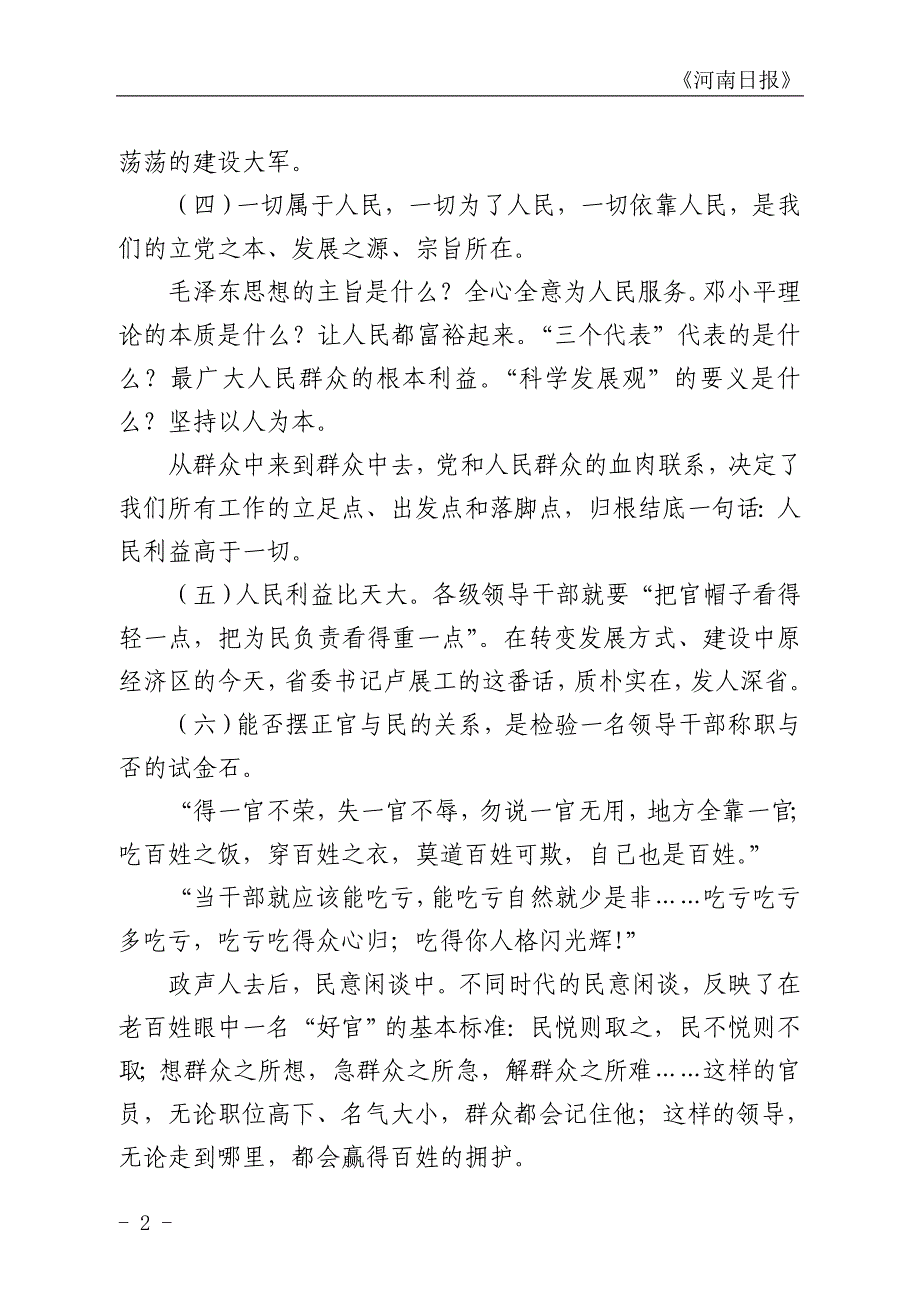 《河南日报》
荡荡的建设大军。
（四）一切属于人民，一切为了人民，一切依靠人民，是我
们的立党之本、发展之源、宗旨所在。
毛泽东思想的主旨是什么？全心全意为人民服务。邓小平理
论的本质是什么？让人民都富裕起来。“三个代表”代表的是什
么？最广大人民群众的根本利益。“科学发展观”的要义是什
么？坚持以人为本。
从群众中来到群众中去，党和人民群众的血肉联系，决定了
我们所有工作的立足点、出发点和落脚点，归根结底一句话：人
民利益高于一切。
（五）人民利益比天大。各级领导干部就要“把官帽子看得
轻一点，把为民负责看得重一点”。在转变发展方式、建设中原
经济区的今天，省委书记卢展工的这番话，质朴实在，发人深省。
（六）能否摆正官与民的关系，是检验一名领导干部称职与
否的试金石。
“得一官不荣，失一官不辱，勿说一官无用，地方全靠一官；
吃百姓之饭，穿百姓之衣，莫道百姓可欺，自己也是百姓。”
“当干部就应该能吃亏，能吃亏自然就少是非……吃亏吃亏
多吃亏，吃亏吃得众心归；吃得你人格闪光辉！”
政声人去后，民意闲谈中。不同时代的民意闲谈，反映了在
老百姓眼中一名“好官”的基本标准：民悦则取之，民不悦则不
取；想群众之所想，急群众之所急，解群众之所难……这样的官
员，无论职位高下、名气大小，群众都会记住他；这样的领导，
无论走到哪里，都会赢得百姓的拥护。
- 2 -